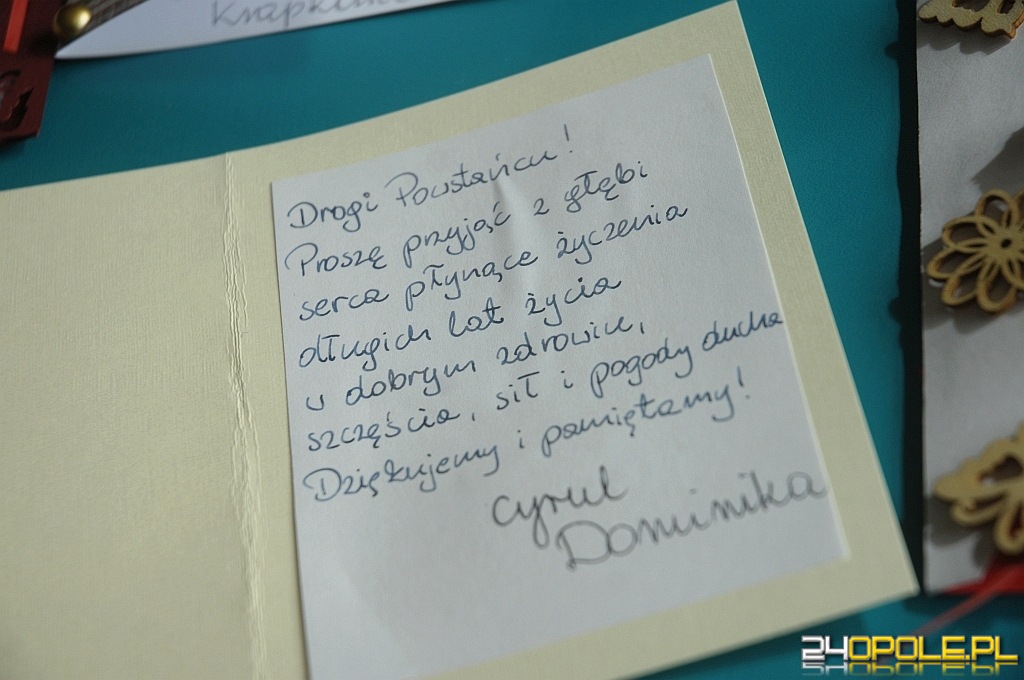 Drogi Powstańcu!
Proszę przyjąć z głębi
serca płynące życzenia
długich lat życia
w dobrym zdrowiu,
szczęścia, sił i pogody ducha
Dziękujemy i pamiętamy!
Cyryl
Dominika
24OPOLE.PL